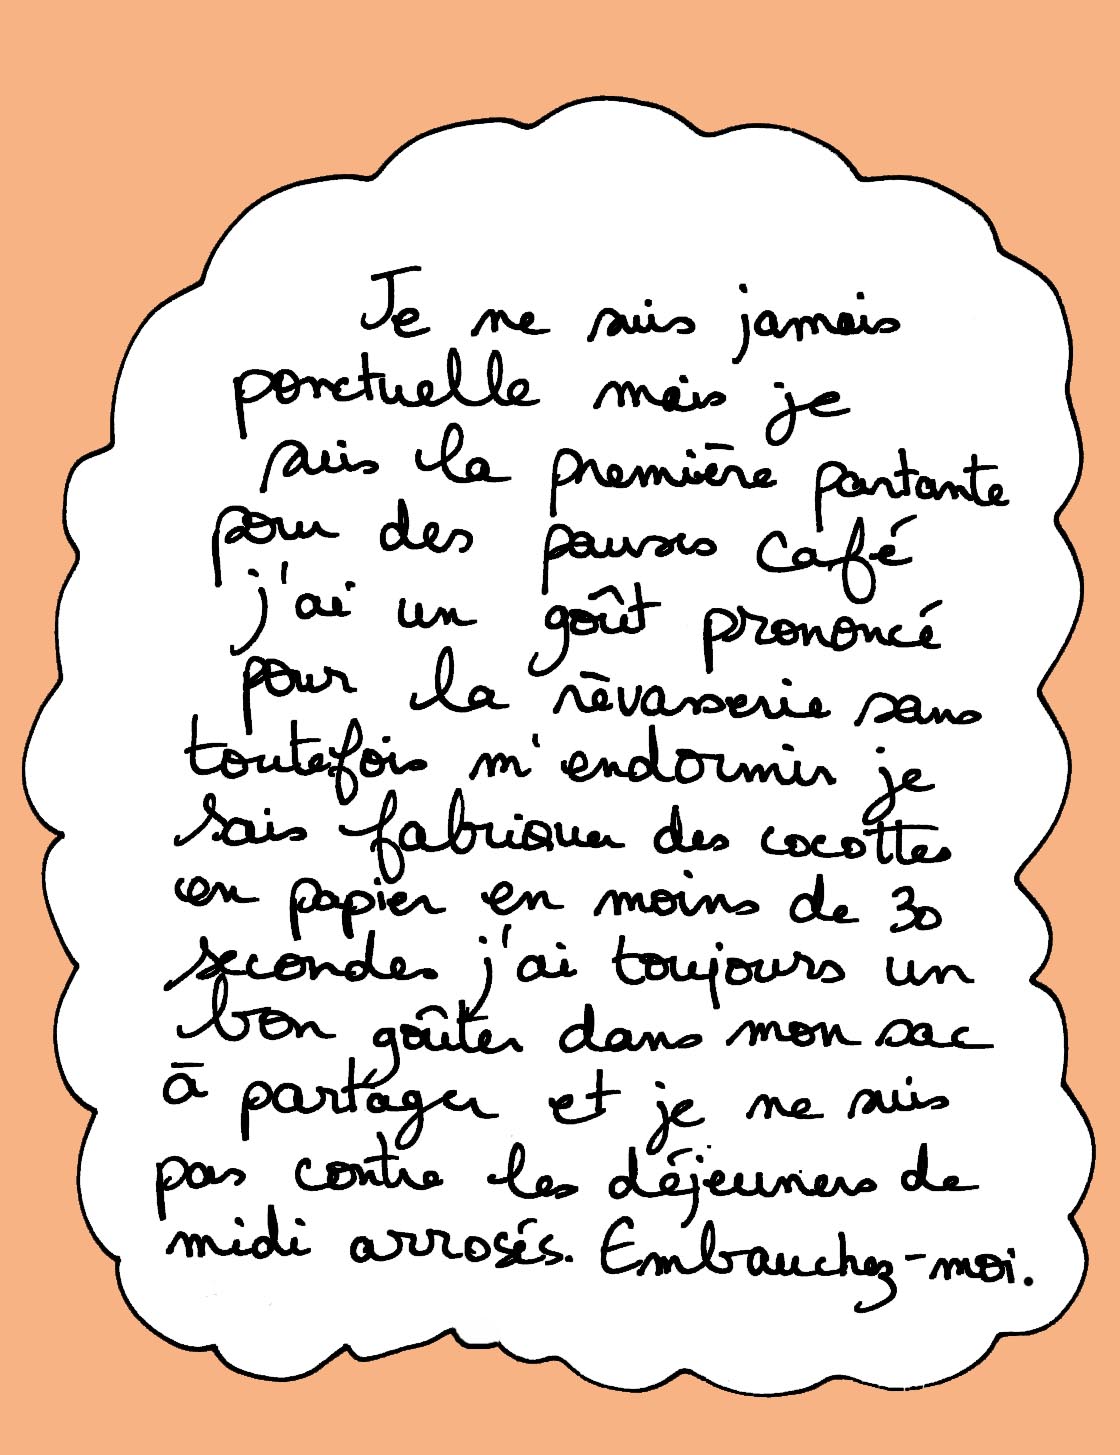 Je ne suis jamais
ponctuelle mais je
suis la première partante
pour des pauses café
j'ai un goût prononcé
pour la rêvasserie sans
toutefois m'endormir je
sais fabriquer des cocottes
en papier en moins de 30
secondes j'ai toujours un
bon goûter dans mon sac
à partager et je ne suis
pas contre les déjeuners de
midi arrosés. Embauchez-moi.